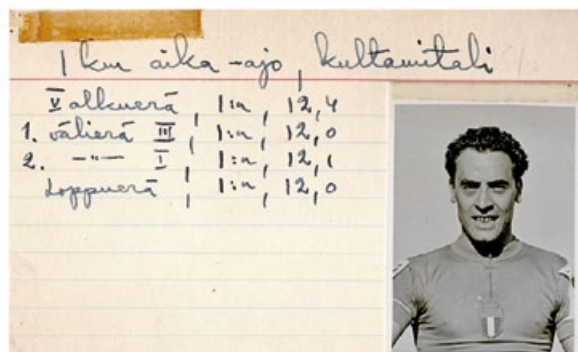 1 km aika-ajo, kultamitali
V alkuerä, 1:n, 12,4
1. välierä III, 1:n, 12,0
2. —"— I, 1:n, 12,1
Loppuerä, 1:n, 12,0